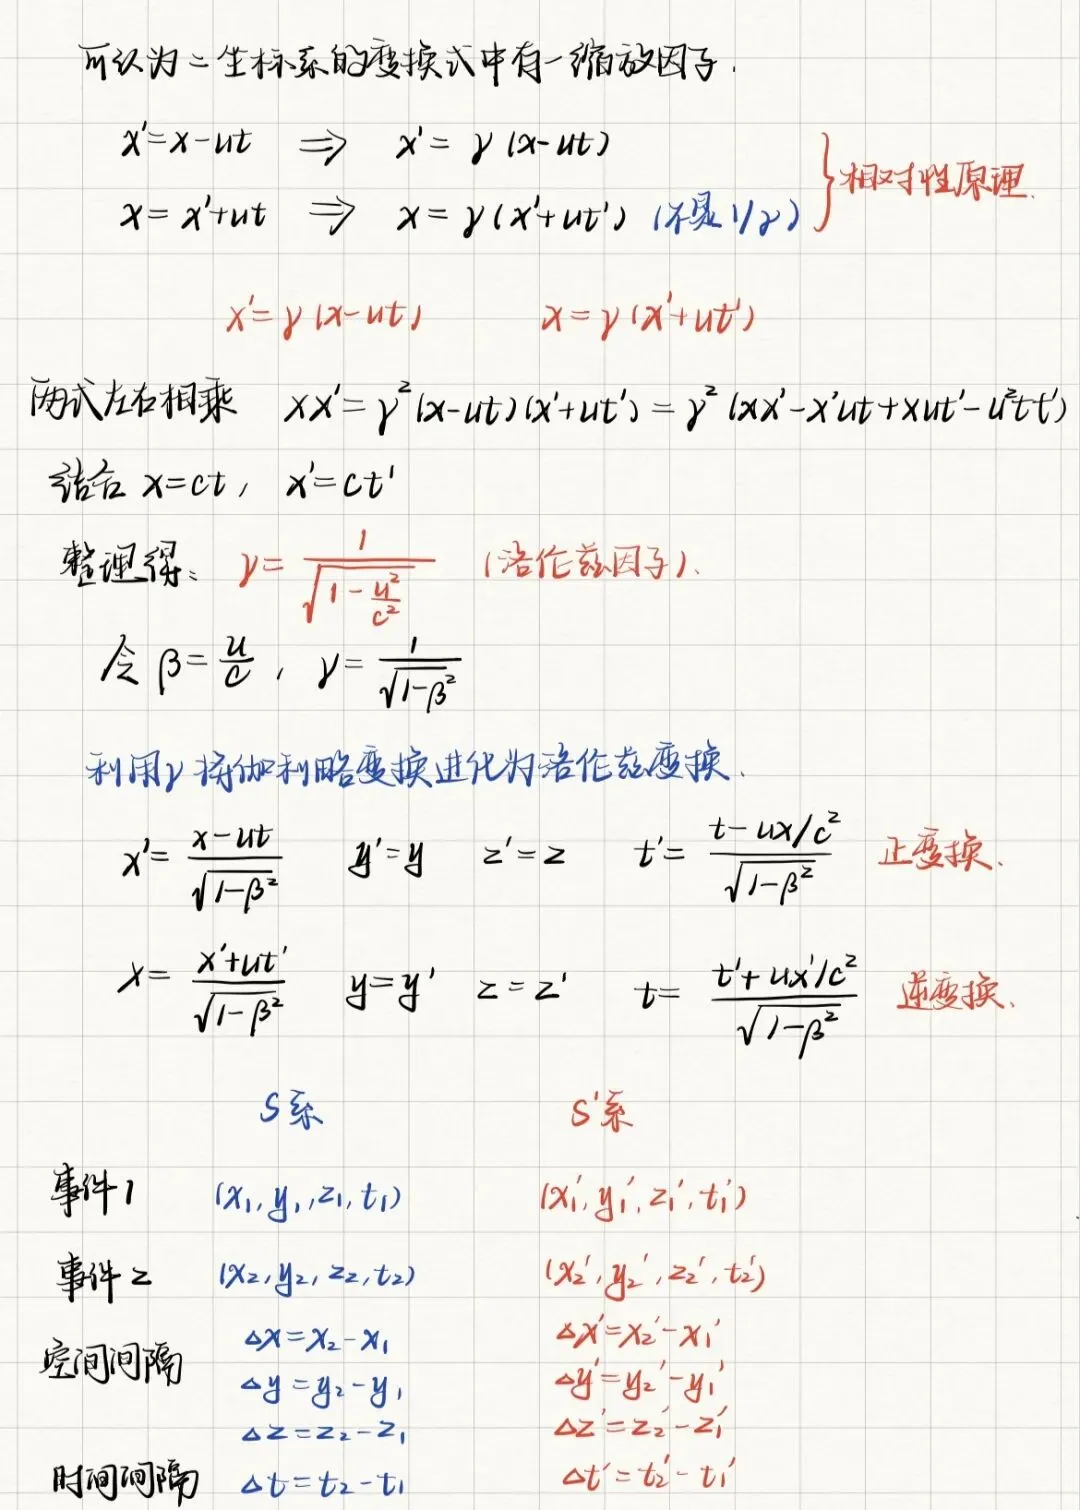 可认为二坐标系的变换式中有一缩放因子.
x'=x-ut ⇒ x'=γ(x-ut)
x=x'+ut ⇒ x=γ(x'+ut') (不是1/γ) } 相对性原理.
x'=γ(x-ut) x=γ(x'+ut')
两式左右相乘 xx'=γ²(x-ut)(x'+ut')=γ²(xx'-x'ut+xut'-u²tt')
结合 x=ct, x'=ct'
整理得: γ=1/√(1-u²/c²) (洛伦兹因子).
令 β=u/c, γ=1/√(1-β²)
利用γ将伽利略变换进化为洛伦兹变换.
x'=(x-ut)/√(1-β²) y'=y z'=z t'=(t-ux/c²)/√(1-β²) 正变换.
x=(x'+ut')/√(1-β²) y=y' z=z' t=(t'+ux'/c²)/√(1-β²) 逆变换.
S系 S'系
事件1 (x₁,y₁,z₁,t₁) (x₁',y₁',z₁',t₁')
事件2 (x₂,y₂,z₂,t₂) (x₂',y₂',z₂',t₂')
空间间隔 Δx=x₂-x₁ Δx'=x₂'-x₁'
Δy=y₂-y₁ Δy'=y₂'-y₁'
Δz=z₂-z₁ Δz'=z₂'-z₁'
时间间隔 Δt=t₂-t₁ Δt'=t₂'-t₁'